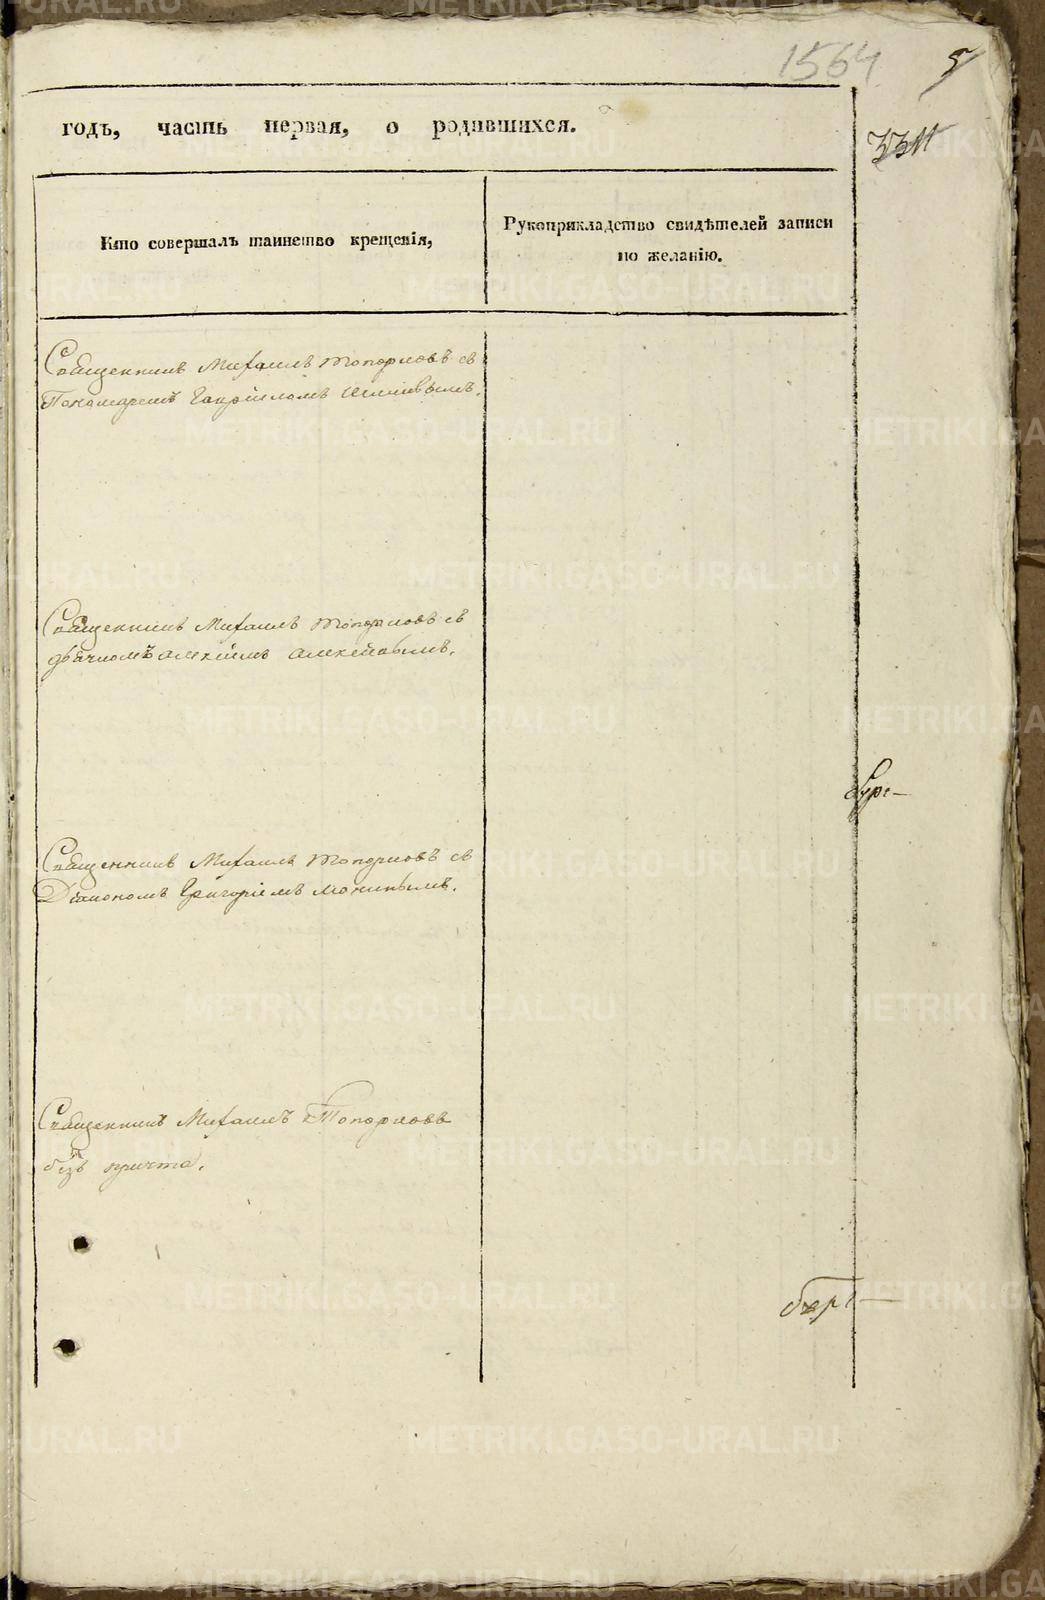 1564
5
годъ, часть первая, о родившихся.
Кто совершалъ таинство крещенія,
Рукоприкладство свидѣтелей записи
по желанію.
Священникъ Михаилъ Топорковъ съ
Пономаремъ Гавріиломъ
Священникъ Михаилъ Топорковъ съ
дьячкомъ Алексіемъ Алексѣевымъ.
Священникъ Михаилъ Топорковъ съ
Діакономъ Григоріемъ
Священникъ Михаилъ Топорковъ
безъ причта.
METRIKI.GASO-URAL.RU